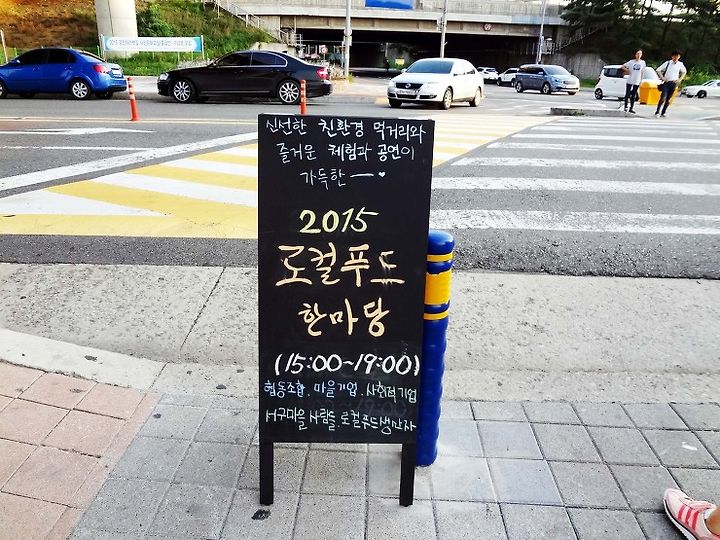 신선한 친환경 먹거리와
즐거운 체험과 공연이
가득한
2015
로컬푸드
한마당
(15:00~19:00)
협동조합. 마을기업. 사회적기업
서구마을 사람들. 로컬푸드생산자